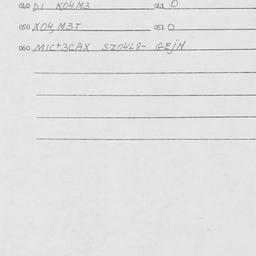 040 DI K04M3 041 O
050 X04, M3T 051 O
060 MIC+3CAX SZ04L8- GEJN